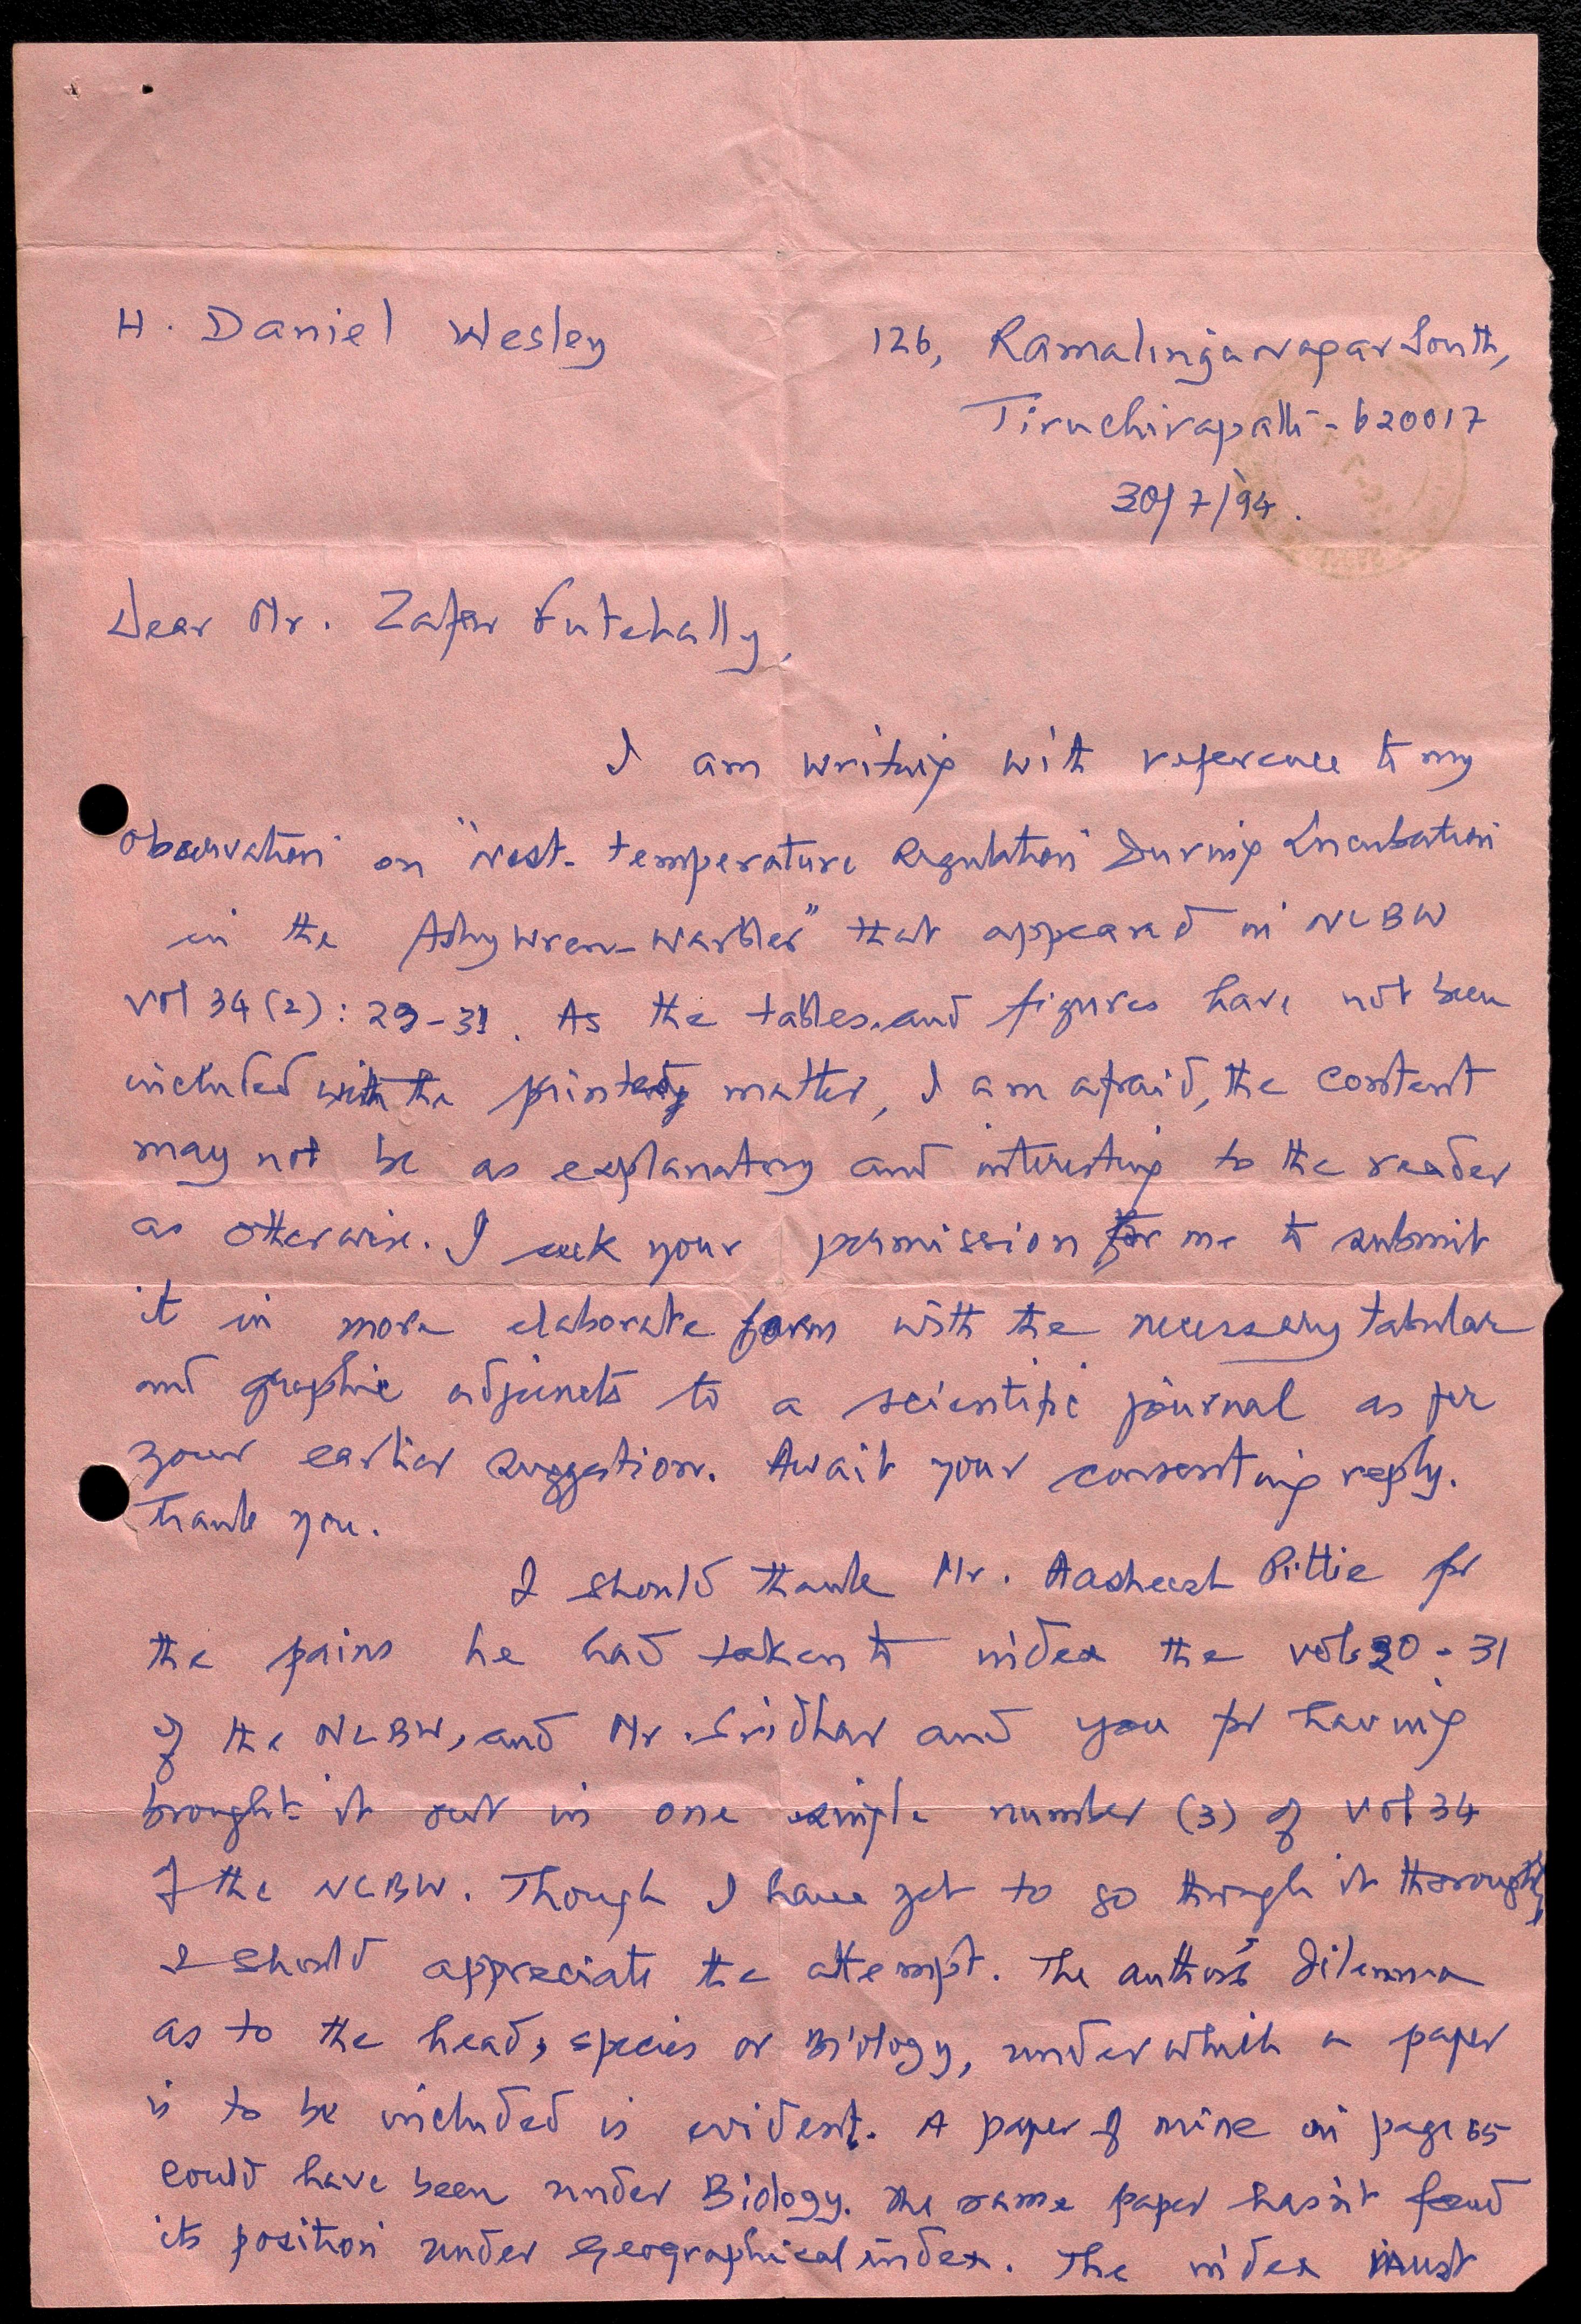 H. Daniel Wesley
126, Ramalinganagar South,
Tiruchirapalli - 620017
30/7/94.
Dear Mr. Zafar Futehally,
I am writing with reference to my
observation on "Nest-temperature Regulation During Incubation
in the Ashy Wren-Warbler" that appeared in NLBW
vol 34 (2): 29-31. As the tables and figures have not been
included with the printed matter, I am afraid, the content
may not be as explanatory and interesting to the reader
as otherwise. I seek your permission for me to submit
it in more elaborate form with the necessary tabular
and graphic adjuncts to a scientific journal as per
your earlier suggestion. Await your consenting reply.
Thank you.
I should thank Mr. Aasheesh Pittie for
the pains he had taken to index the vols 20-31
of the NLBW, and Mr. Sridhar and you for having
brought it out in one single number (3) of vol 34
of the NLBW. Though I have yet to go through it thoroughly,
I should appreciate the attempt. The author's dilemma
as to the head, species or Biology, under which a paper
is to be included is evident. A paper of mine on page 65
could have been under Biology. The same paper hasn't found
its position under Geographical index. The index must